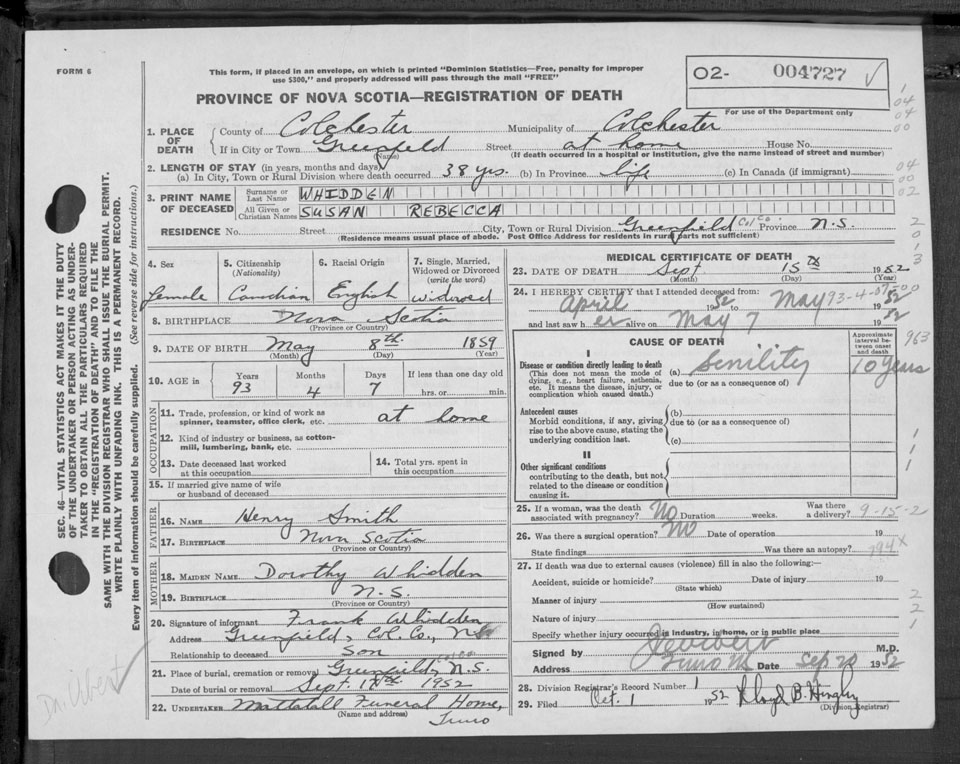 FORM 6
This form, if placed in an envelope, on which is printed "Dominion Statistics—Free, penalty for improper
use $300," and properly addressed will pass through the mail "FREE"
PROVINCE OF NOVA SCOTIA—REGISTRATION OF DEATH
02- 004727 ✓
For use of the Department only
1. PLACE OF DEATH { County of Colchester Municipality of Colchester
If in City or Town Greenfield Street at home House No.
(Name) (If death occurred in a hospital or institution, give the name instead of street and number)
2. LENGTH OF STAY (in years, months and days)
(a) In City, Town or Rural Division where death occurred 38 yrs. (b) In Province life (c) In Canada (if immigrant)
3. PRINT NAME OF DECEASED { Surname or Last Name WHIDDEN
All Given or Christian Names SUSAN REBECCA
RESIDENCE No. Street City, Town or Rural Division Greenfield Col Co Province N.S.
(Residence means usual place of abode. Post Office Address for residents in rural parts not sufficient)
4. Sex female
5. Citizenship (Nationality) Canadian
6. Racial Origin English
7. Single, Married, Widowed or Divorced (write the word) widowed
8. BIRTHPLACE Nova Scotia
(Province or Country)
9. DATE OF BIRTH May 8th 1859
(Month) (Day) (Year)
10. AGE in Years 93 Months 4 Days 7 If less than one day old hrs. or min.
OCCUPATION
11. Trade, profession, or kind of work as spinner, teamster, office clerk, etc. at home
12. Kind of industry or business, as cotton-mill, lumbering, bank, etc.
13. Date deceased last worked at this occupation
14. Total yrs. spent in this occupation
15. If married give name of wife or husband of deceased
FATHER
16. NAME Henry Smith
17. BIRTHPLACE Nova Scotia
(Province or Country)
MOTHER
18. MAIDEN NAME Dorothy Whidden
19. BIRTHPLACE N.S.
(Province or Country)
20. Signature of informant Frank Whidden
Address Greenfield, Col. Co., N.S.
Relationship to deceased Son
21. Place of burial, cremation or removal Greenfield, N.S.
Date of burial or removal Sept. 17th 1952
22. UNDERTAKER Mattatall Funeral Home,
(Name and address) Truro
MEDICAL CERTIFICATE OF DEATH
23. DATE OF DEATH Sept 15th 1952
(Month) (Day) (Year)
24. I HEREBY CERTIFY that I attended deceased from:
April 1952 to May 1952
93-4-07-00
and last saw her alive on May 7 1952
CAUSE OF DEATH
Approximate interval between onset and death
I
Disease or condition directly leading to death (a) Senility 10 years
(This does not mean the mode of dying, e.g., heart failure, asthenia, etc. It means the disease, injury, or complication which caused death.)
due to (or as a consequence of)
Antecedent causes
Morbid conditions, if any, giving rise to the above cause, stating the underlying condition last.
(b)
due to (or as a consequence of)
(c)
II
Other significant conditions
contributing to the death, but not related to the disease or condition causing it.
25. If a woman, was the death associated with pregnancy? No Duration weeks. Was there a delivery? 9-15-2
26. Was there a surgical operation? No Date of operation 19
State findings Was there an autopsy? 794x
27. If death was due to external causes (violence) fill in also the following:—
Accident, suicide or homicide? Date of injury 19
(State which)
Manner of injury
(How sustained)
Nature of injury
Specify whether injury occurred in industry, in home, or in public place
Signed by M.D.
Address Truro NS Date Sep 20 1952
28. Division Registrar's Record Number 1
29. Filed Oct. 1 1952 Lloyd B. Hingley
(Division Registrar)
SEC. 46—VITAL STATISTICS ACT MAKES IT THE DUTY
OF THE UNDERTAKER OR PERSON ACTING AS UNDER-
TAKER TO OBTAIN ALL THE PARTICULARS REQUIRED
IN THE "REGISTRATION OF DEATH" AND TO FILE THE
SAME WITH THE DIVISION REGISTRAR WHO SHALL ISSUE THE BURIAL PERMIT.
WRITE PLAINLY WITH UNFADING INK. THIS IS A PERMANENT RECORD.
Every item of information should be carefully supplied. (See reverse side for instructions.)
963